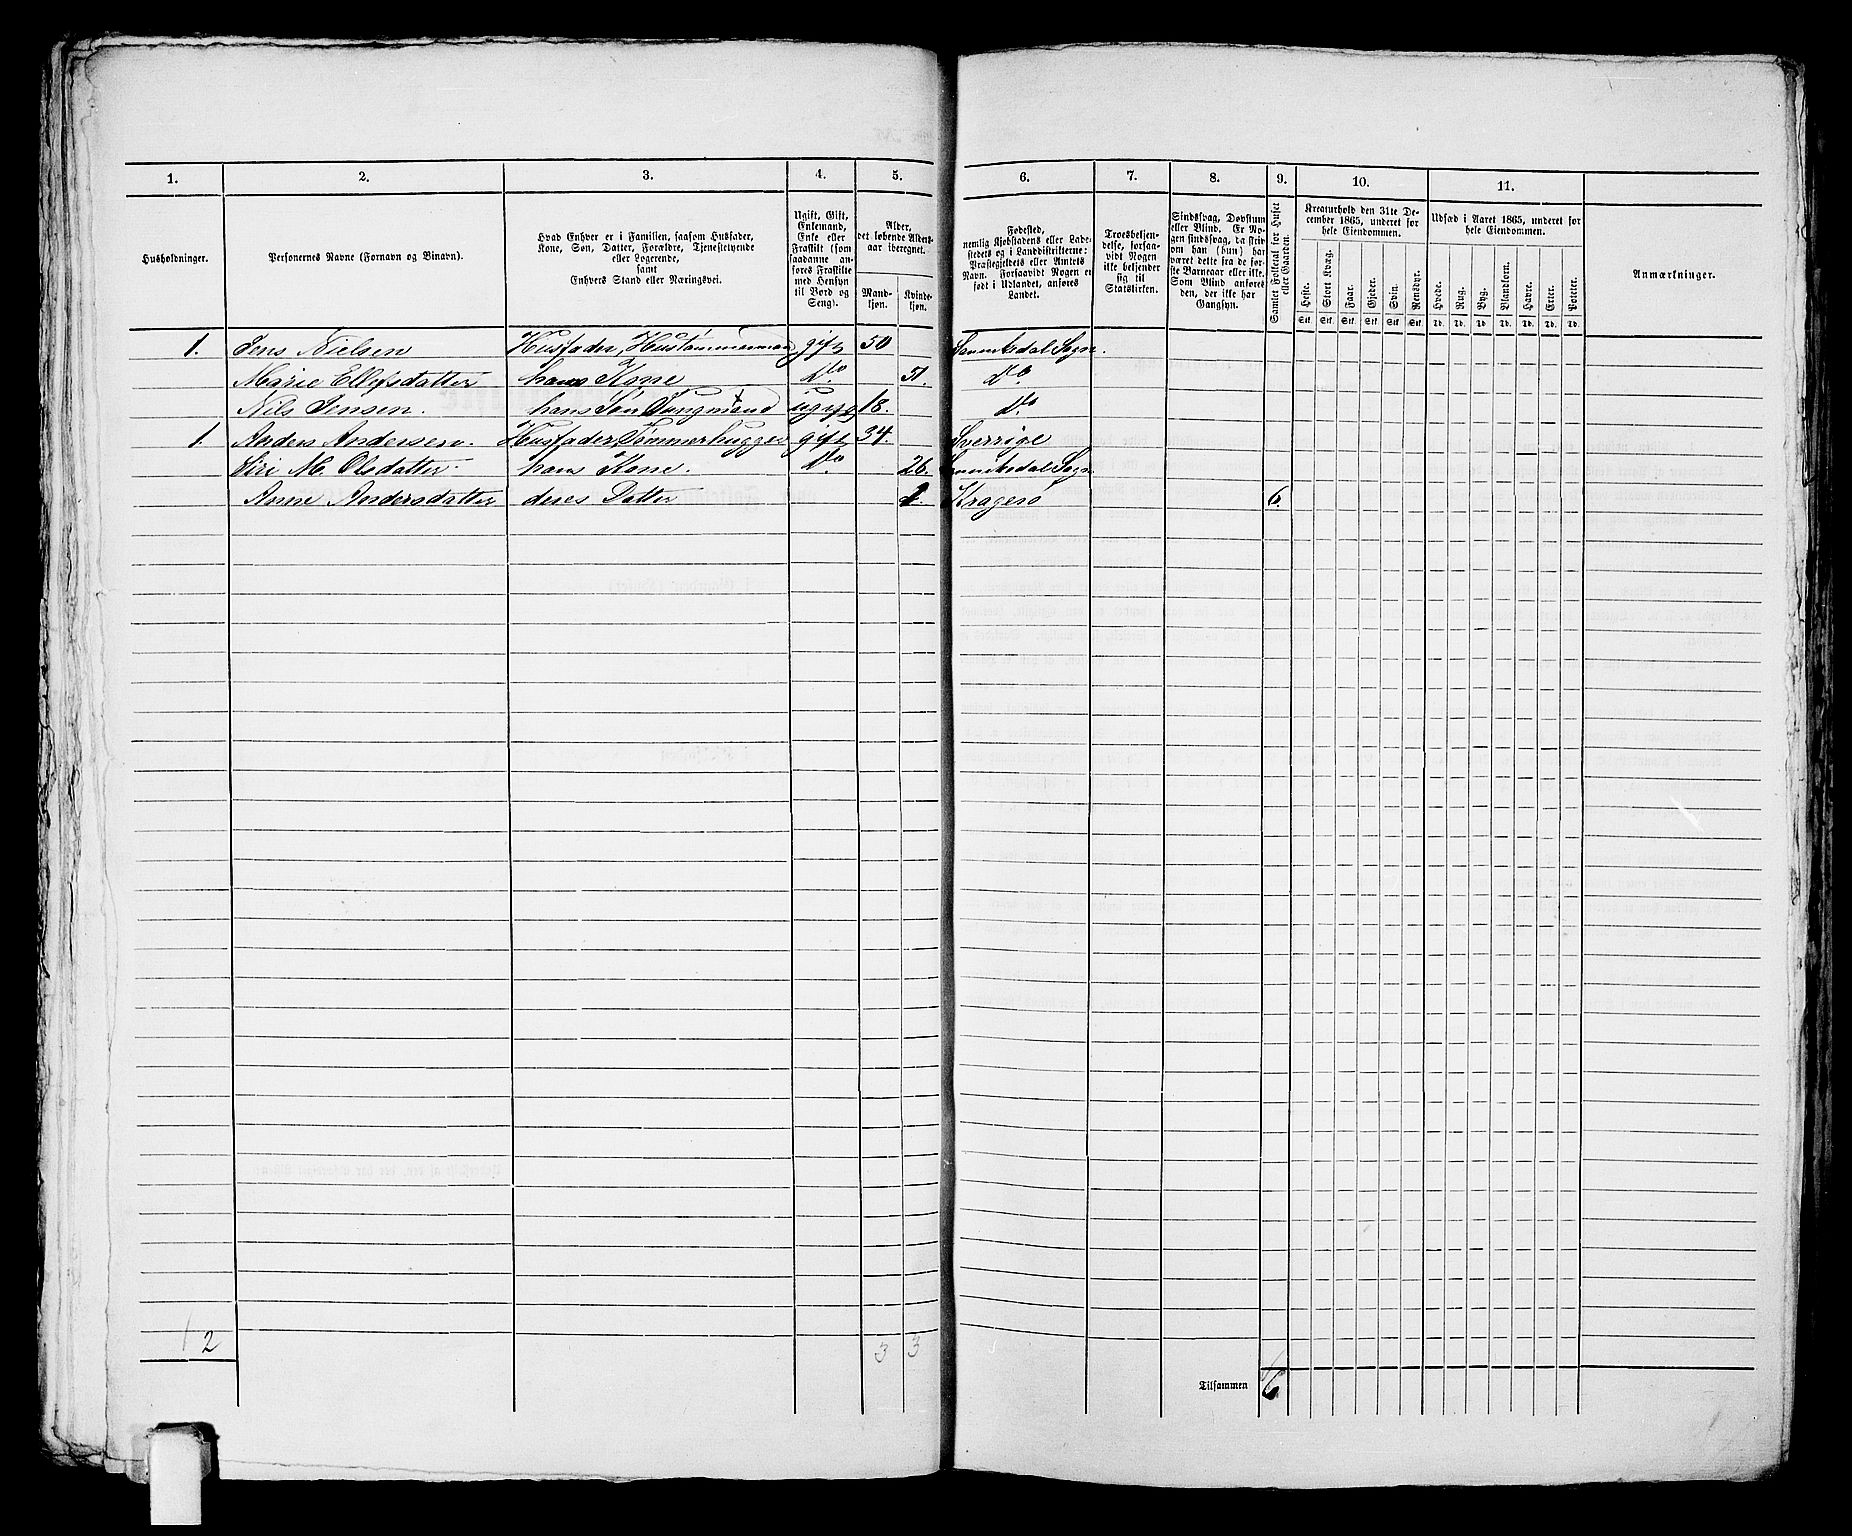 1. 2. 3. 4. 5. 6. 7. 8. 9. 10. 11.
Husholdninger.
Personernes Navne (Fornavn og Binavn).
Hvad Enhver er i Familien, saasom Husfader,
Kone, Søn, Datter, Forældre, Tjenestetyende
eller Logerende,
samt
Enhvers Stand eller Næringsvei.
Ugift, Gift,
Enkemand,
Enke eller
Fraskilt (som
saadanne anføres Fraskilte
med Hensyn
til Bord og
Seng).
Alder,
det løbende Aldersaar iberegnet.
Mandkjøn.
Kvindekjøn.
Fødested,
nemlig Kjøbstadens eller Ladestedets eller i Landdistrikterne:
Præstegjeldets eller Amtets
Navn. Forsaavidt Nogen er
født i Udlandet, anføres
Landet.
Troesbekjendelse, forsaavidt Nogen
ikke bekjender
sig til
Statskirken.
Sindssvag, Døvstum
eller Blind. Er Nogen sindssvag, da skrives om han (hun) har
været dette fra de første Barneaar eller ikke.
Som Blind anføres
den, der ikke har
Gangsyn.
Samlet Folketal for Huset
eller Gaarden.
Kreaturhold den 31te December 1865, underet for
hele Eiendommen.
Heste. Stort Kvæg. Faar. Gjeder. Svin. Rensdyr.
Stk. Stk. Stk. Stk. Stk. Stk.
Udsæd i Aaret 1865, underet for
hele Eiendommen.
Hvede. Rug. Byg. Blandkorn. Havre. Erter. Poteter.
Td. Td. Td. Td. Td. Td. Td.
Anmærkninger.
1. Jens Nielsen Husfader, Hustømmermand gift 50 Sannikedal Sogn.
Marie Ellefsdatter hans Kone Do 51. Do
Nils Jensen. hans Søn Jungmand ugift 18. Do
1. Anders Andersen. Husfader, Tømmerhugger gift 34. Sverrige
Siri M. Olsdatter. hans Kone. Do 26. Sannikedal Sogn
Anne Andersdatter deres Datter 1. Kragerø 6.
2 3 3
Tilsammen 6